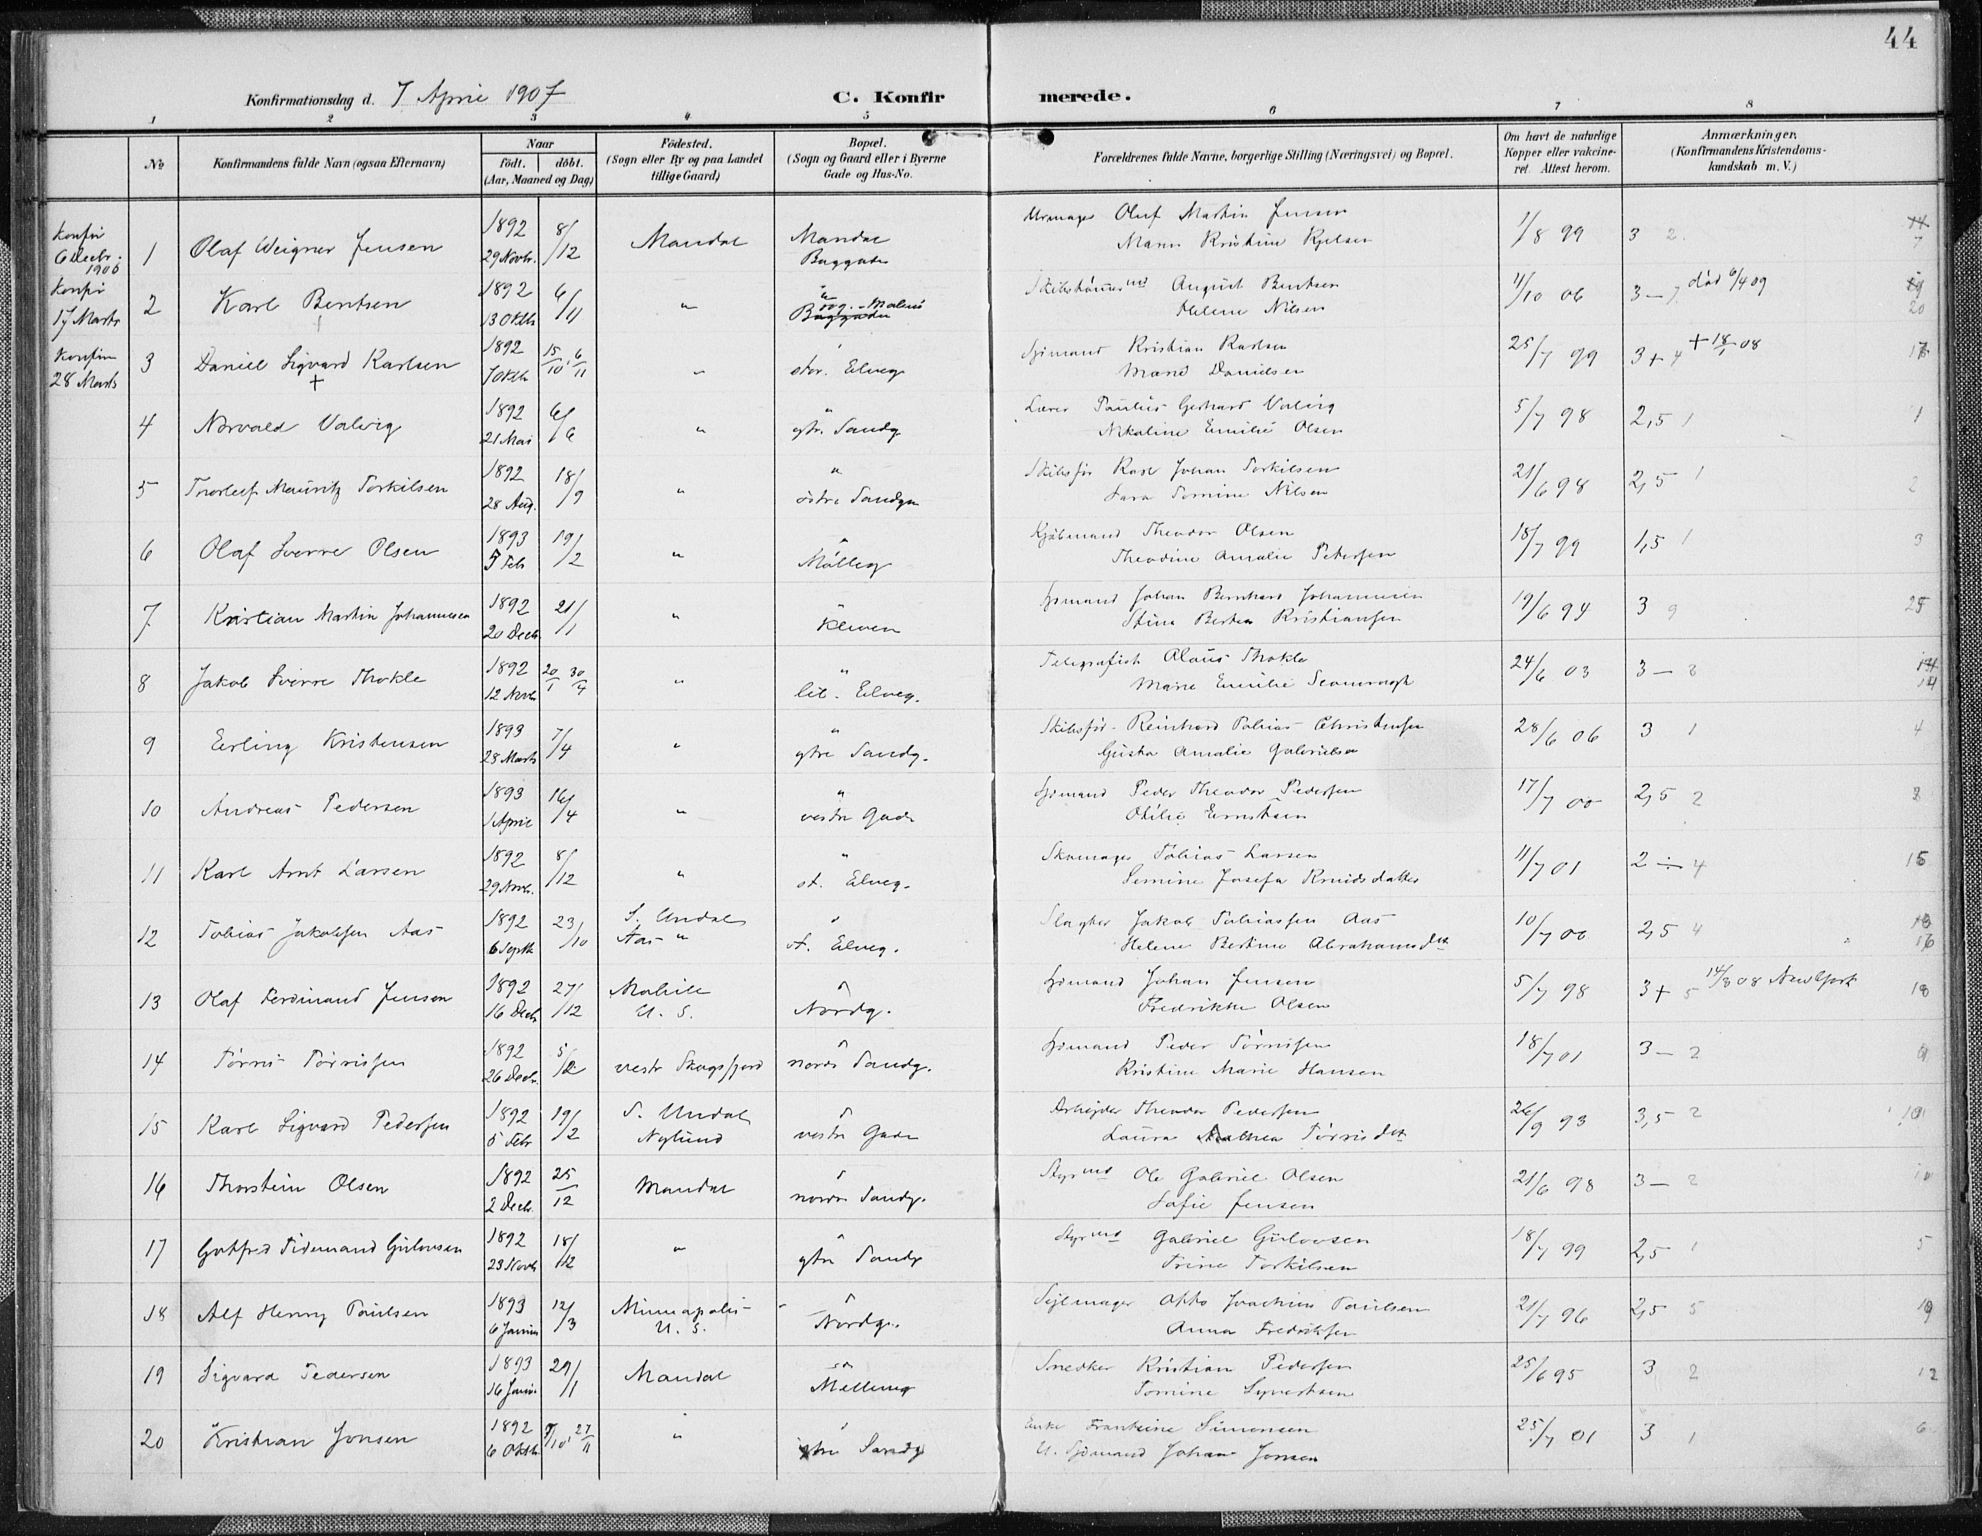 44
Konfirmationsdag d. 7 April 1907 C. Konfirmerede.
1 2 3 4 5 6 7 8
No
Konfirmandens fulde Navn (ogsaa Efternavn)
Naar
födt. döbt.
(Aar, Maaned og Dag)
Födested.
(Sogn eller By og paa Landet
tillige Gaard)
Bopæl.
(Sogn og Gaard eller i Byerne
Gade og Hus-No.
Forældrenes fulde Navne, borgerlige Stilling (Næringsvei) og Bopæl.
Om havt de naturlige
Kopper eller vakcine-
ret. Attest herom.
Anmærkninger.
(Konfirmandens Kristendoms-
kundskab m. V.)
Konfir 6 Decbr. 1906
1 Olaf Weigner Jensen 1892 29 Novbr. 8/12 Mandal Mandal Baggaden
Urmager Oluf Martin Jensen
Kristine 1/8 99 3 2 7
Konfir 17 Marts
2 Karl Bentsen 1892 13 Oktb 6/11 " " Malmö Baggaden
August Bentsen
Helene Nilsen 11/10 06 3 – 7 död 6/4 09 20
Konfirm 28 Marts
3 Daniel Sigvard Karlsen + 1892 7 Oktb 15/10, 6/11 " stor. Elveg
Sjömand Kristian Karlsen
Danielsen 25/7 99 3 + 4 + 18/1 08
4 Norvald Valvig 1892 21 Mai 6/6 " " ytr. Sandg
Lærer Paulus Gerhard Valvig
Nikaline Emilie Olsen 5/7 98 2,5 1 1
5 Thorleif Mauritz Torkilsen 1892 28 Aug. 18/9 " " östre Sandgn
Skibsför Karl Johan Torkilsen
Sara Tomine Nilsen 21/6 98 2,5 1 2
6 Olaf Sverre Olsen 1893 5 Feb 19/2 " " Mölleg
Kjöbmand Theodor Olsen
Theodine Amalie Petersen 18/7 99 1,5 1 3
7 Kristian Martin Johannesen 1892 20 Decb. 21/1 " " Kleven
Sjömand Johan Bernhard Johannesen
Stina Bertea Kristiansen 19/6 94 3 9 25
8 Jakob Sverre Thokle 1892 12 Novb 20/1 30/4 " " lil. Elveg.
Telegrafist Claus Thokle
Marie Emilie 24/6 03 3 – 14
9 Erling Kristensen 1893 23 Marts 7/4 " " ytre Sandg.
Skibsför. Reinhard Tobias Christensen
Gusta Amalie Gabrielsen 28/6 06 3 1 4
10 Andreas Pedersen 1893 1 April 16/4 " " vestre Gade
Sjömand Peder Theodor Pedersen
Othilie Ernstsen 17/7 00 2,5 2 8
11 Karl Arnt Larsen 1892 29 Novb. 8/12 " " st. Elveg.
Skomager Tobias Larsen
Semine Josefa Knudsdatter 11/7 01 2 ÷ 4 15
12 Tobias Jakobsen Aas 1892 6 Septb 23/10 S. Undal Aas " " st. Elveg.
Slagter Jakob Tobiassen Aas
Helene Bertine Abrahamsdtr 10/7 00 2,5 4 16
13 Olaf Ferdinand Jensen 1892 16 Decb 27/12 Mobile U. S. " Nordg.
Sjömand Johan Jensen
Fredrikke Olsen 5/7 98 3 + 5 14/3 08 New York 18
14 Törris Törrissen 1892 26 Decb. 5/2 vestr Skogsfjord " nordr Sandg.
Sjömand Peder Törrisen
Kristine Marie Hansen 18/7 01 3 – 2 9
15 Karl Sigvard Pedersen 1892 5 Febr 19/2 S. Undal Nylund " vestre Gade
Arbejder Theodor Pedersen
Laura Törrisdtr 26/9 93 3,5 2 10
16 Thorstein Olsen 1892 2 Decb. 25/12 Mandal " nordre Sandg.
Styrmd Ole Gabriel Olsen
Sofie Jensen 21/6 98 3 – 2
17 Gotfred Tidemand Gulovsen 1892 23 Novb 18/12 " " ytre Sandg
Styrmd Gabriel Gulovsen
Trine Torkilsen 18/7 99 2,5 1 5
18 Alf Henry Paulsen 1893 6 Januar 12/3 Minneapolis U. S. " Nordg.
Sejlmager Otto Joachim Paulsen
Anna Fredriksen 21/7 96 2,5 5 19
19 Sigvard Pedersen 1893 16 Januar 29/1 Mandal " Mölleveg
Snedker Kristian Pedersen
Tomine Syvertsen 25/6 95 3 2 12
20 Kristian Jonsen 1892 6 Oktb 9/10, 27/11 " " ytre Sandg
Enke Frantsine Simonsen
Sjömand Johan Jonsen 25/7 01 3 1 6